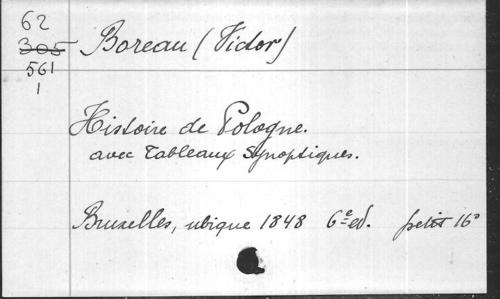 62
305
561
1
Boreau (Victor)
Histoire de Pologne.
avec Tableaux Synoptiques.
Bruxelles, ubique 1848 6e ed. petit 16°